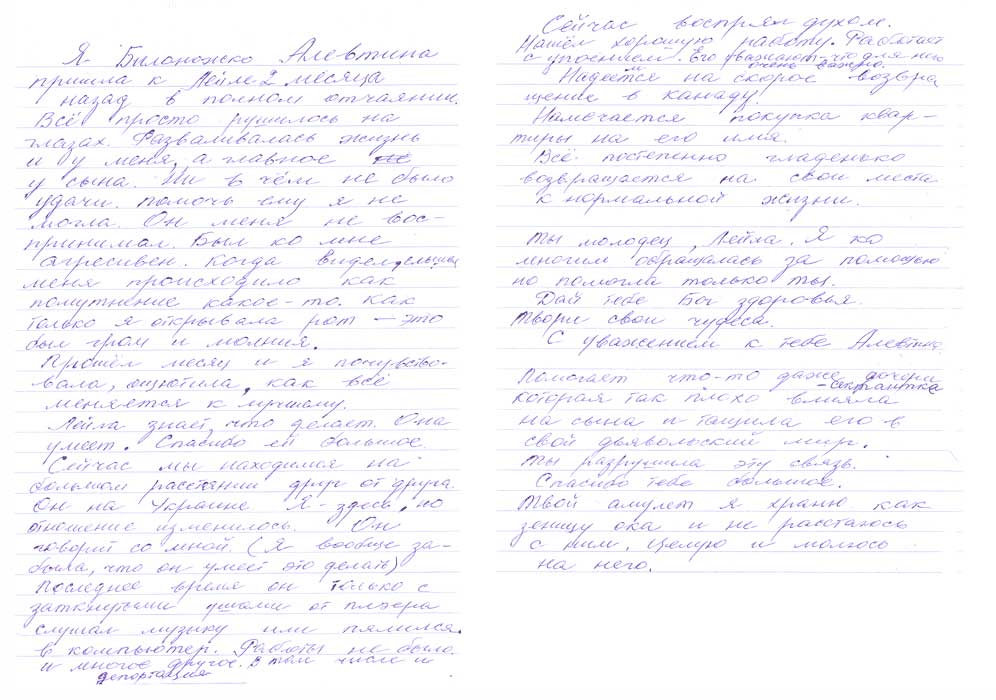 Я Билоножко Алевтина
пришла к Лейле 2 месяца
назад в полном отчаянии.
Всё просто рушилось на
глазах. Разваливалась жизнь
и у меня, а главное
у сына. Ни в чём не было
удачи. Помочь ему я не
могла. Он меня не вос-
принимал. Был ко мне
агресивен. Когда видел, слышал
меня происходило как
помутнение какое-то. Как
только я открывала рот — это
был гром и молния.
Прошёл месяц и я почувство-
вала, ощютила, как всё
меняется к лучшему.
Лейла знает, что делает. Она
умеет. Спасибо ей большое.
Сейчас мы находимся на
большом расстоянии друг от друга.
Он на Украине Я - здесь, но
отношение изменилось. Он
говорит со мной. (Я вообще за-
была, что он умеет это делать)
Последнее время он только с
заткнутыми ушами от плэера
слушал музыку или пялился
в компьютер. Работы не было.
и многое другое. В том числе и
депортация
Сейчас воспрял духом.
Нашёл хорошую работу. Работает
с упоением. Его уважают, что для него
очень важно.
Надеется на скорое возвра
щение в Канаду.
Намечается покупка квар-
тиры на его имя.
Всё постепенно гладенько
возвращается на свои места
к нормальной жизни.
Ты молодец, Лейла. Я ко
многим обращалась за помощью
но помогла только ты.
Дай тебе Бог здоровья.
Твори свои чудеса.
С уважением к тебе Алевтина
Помогает что-то даже дочери
- сектантка
которая так плохо влияла
на сына и тащила его в
свой дьявольский мир.
Ты разрушила эту связь.
Спасибо тебе большое.
Твой амулет я храню как
зеницу ока и не расстаюсь
с ним. Целую и молюсь
на него.